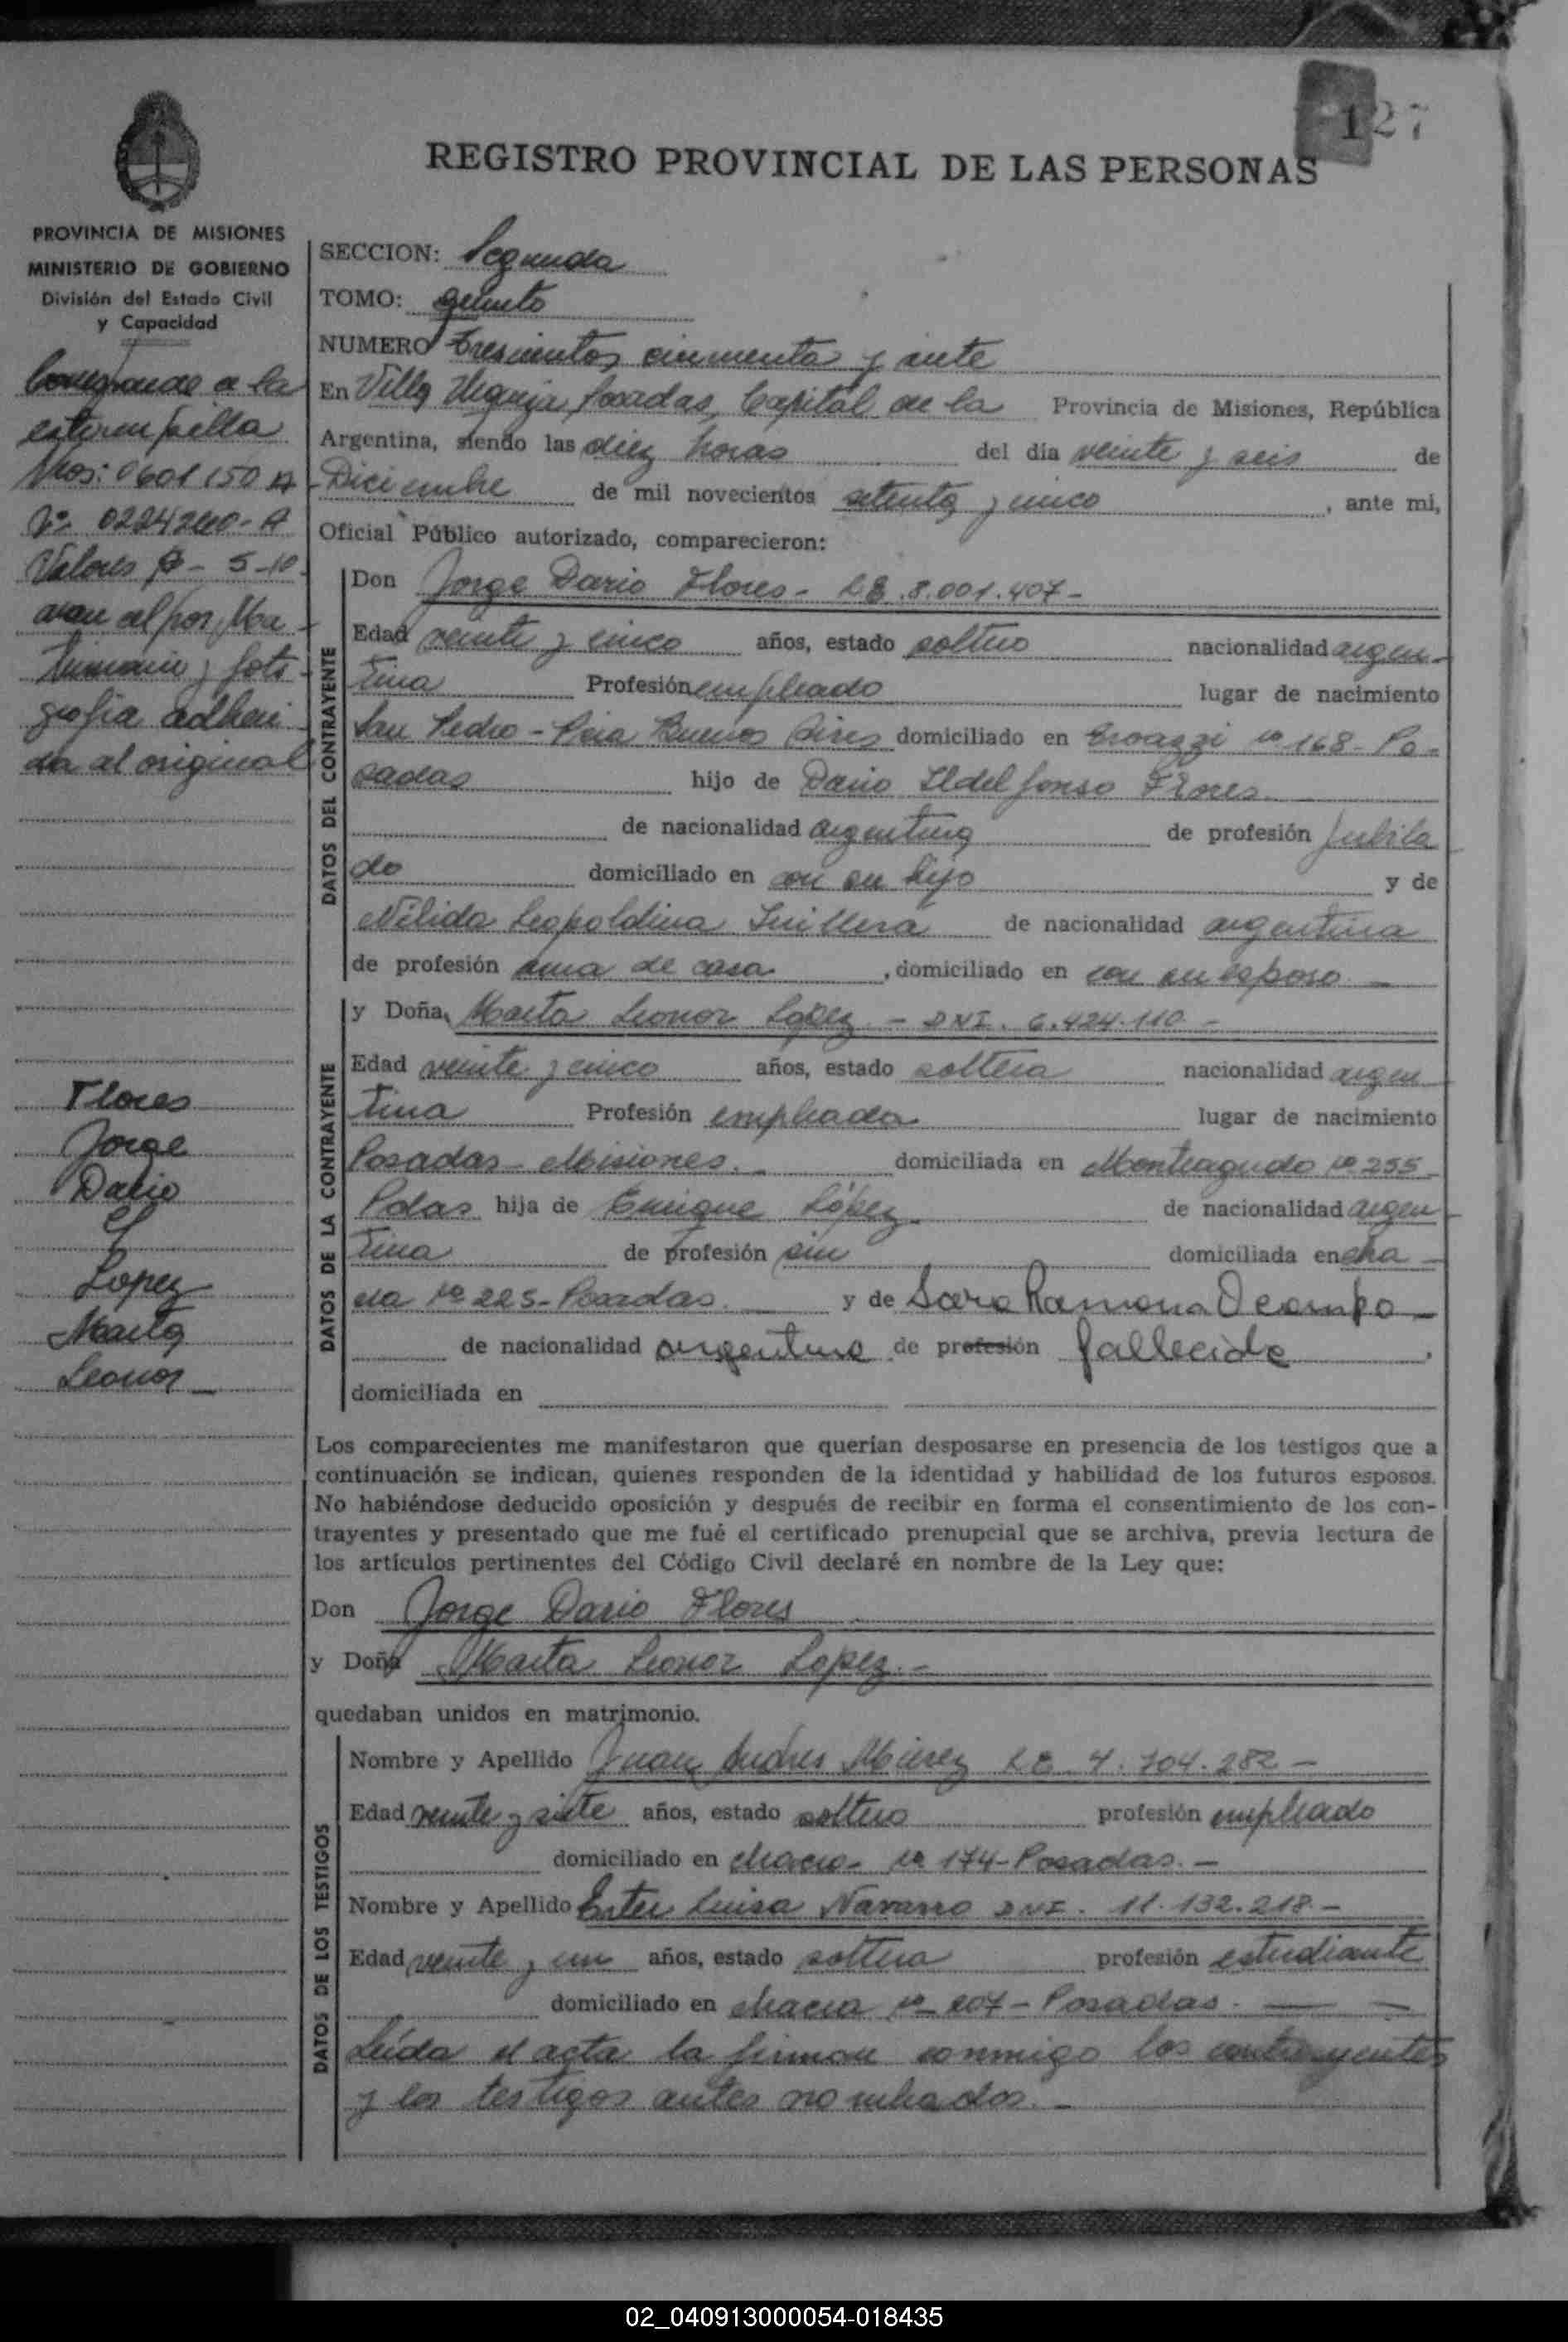 127
REGISTRO PROVINCIAL DE LAS PERSONAS
PROVINCIA DE MISIONES
MINISTERIO DE GOBIERNO
División del Estado Civil
y Capacidad
Corresponde a la
estampilla
Nos: 0601150 A
Nº 0224240-A
Valores $ - 5-10
Ma-
trimonio y foto
grafia adheri
da al original
Flores
Jorge
Dario
y
Lopez
Marta
Leonor
SECCION: Segunda
TOMO: quinto
NUMERO Trescientos cincuenta y siete
En Villa Urquiza, Posadas, Capital de la Provincia de Misiones, República
Argentina, siendo las diez horas del día veinte y seis de
Diciembre de mil novecientos setenta y cinco, ante mi,
Oficial Público autorizado, comparecieron:
DATOS DEL CONTRAYENTE
Don Jorge Dario Flores - L.E. 8.001.407 -
Edad veinte y cinco años, estado soltero nacionalidad argen-
tina Profesión empleado lugar de nacimiento
San Pedro - Pcia Buenos Aires domiciliado en nº 168 - Po-
sadas hijo de Dario Ildelfonso Flores
de nacionalidad argentina de profesión Jubila
do domiciliado en con su hijo y de
Nélida Leopoldina de nacionalidad argentina
de profesión ama de casa, domiciliado en con su esposo -
DATOS DE LA CONTRAYENTE
y Doña Marta Leonor López - DNI. 6.424.110 -
Edad veinte y cinco años, estado soltera nacionalidad argen
tina Profesión empleada lugar de nacimiento
Posadas - Misiones. - domiciliada en Monteagudo nº 255
Pdas hija de Enrique López de nacionalidad argen
tina de profesión sin domiciliada en cha-
cra nº 225 - Posadas. y de Sara Ramona Ocampo -
de nacionalidad argentina de profesión fallecida.
domiciliada en
Los comparecientes me manifestaron que querían desposarse en presencia de los testigos que a
continuación se indican, quienes responden de la identidad y habilidad de los futuros esposos.
No habiéndose deducido oposición y después de recibir en forma el consentimiento de los con-
trayentes y presentado que me fué el certificado prenupcial que se archiva, previa lectura de
los artículos pertinentes del Código Civil declaré en nombre de la Ley que:
Don Jorge Dario Flores
y Doña Marta Leonor Lopez. -
quedaban unidos en matrimonio.
DATOS DE LOS TESTIGOS
Nombre y Apellido Juan Andres L.E. 4.704.282 -
Edad veinte y siete años, estado soltero profesión empleado
domiciliado en chacra nº 174 - Posadas. -
Nombre y Apellido Ester Luisa Navarro DNI. 11.132.218 -
Edad veinte y un años, estado soltera profesión estudiante
domiciliado en chacra nº 207 - Posadas. -
Leída el acta la firman conmigo los contrayentes
y los testigos antes nombrados. -
02_040913000054-018435